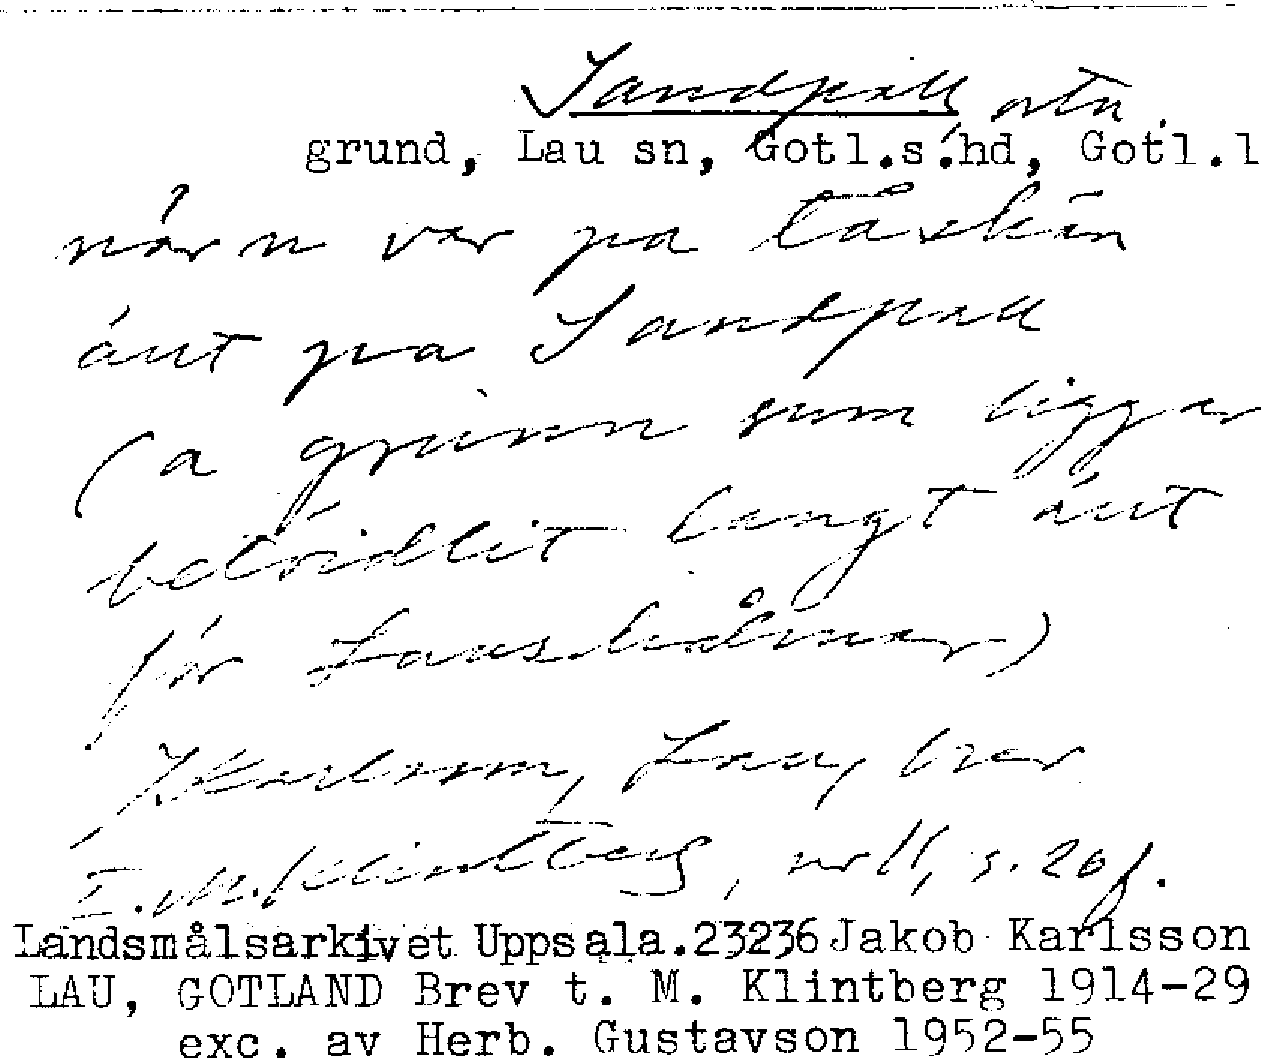 Sandpall, otn.
grund, Lau sn, Gotl.s.hd, Gotl.l
nór n var pa tåskän
áut pa Sandpall
(a grunn sum liggar
betóidlit langt áut
fór Lausholmar)
JKarlsson, Lau, brev
T. M. Klintberg, nr 11, s. 20 f.
Landsmålsarkivet Uppsala.23236 Jakob Karlsson
LAU, GOTLAND Brev t. M. Klintberg 1914-29
exc. av Herb. Gustavson 1952-55